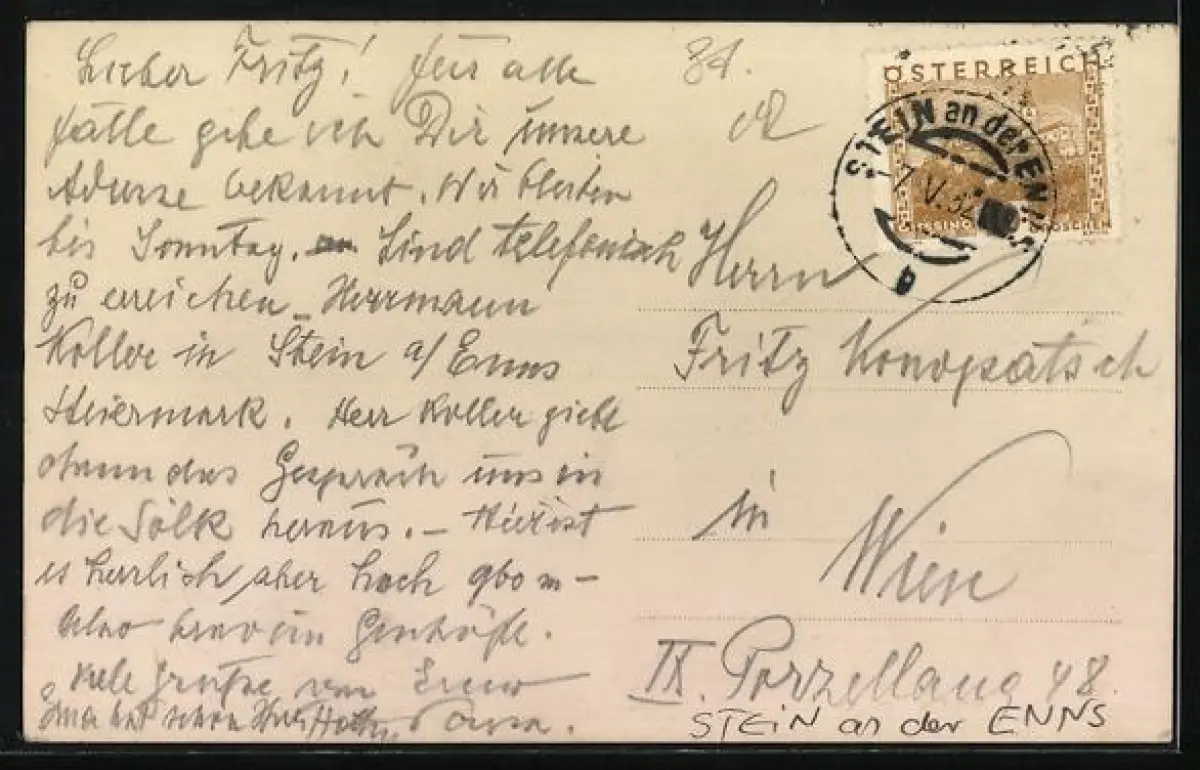 Lieber Fritz! Für alle
Fälle gebe ich Dir unsere
Adresse bekannt. Wir bleiben
bis Sonntag. Sind telefonisch
zu erreichen Herrmann
Koller in Stein a/Enns
Steiermark. Herr Koller giebt
dann das Gespräch uns in
die Sölk heraus. – Hier ist
es herrlich aber hoch 960 m –
Also brav im
Viele Grüße von
hat schon
84.
ÖSTERREICH
STEIN an der ENNS
7.V.32
GROSCHEN
Herrn
Fritz Konopatsch
in
Wien
IX. Porzellang 48.
STEIN an der ENNS